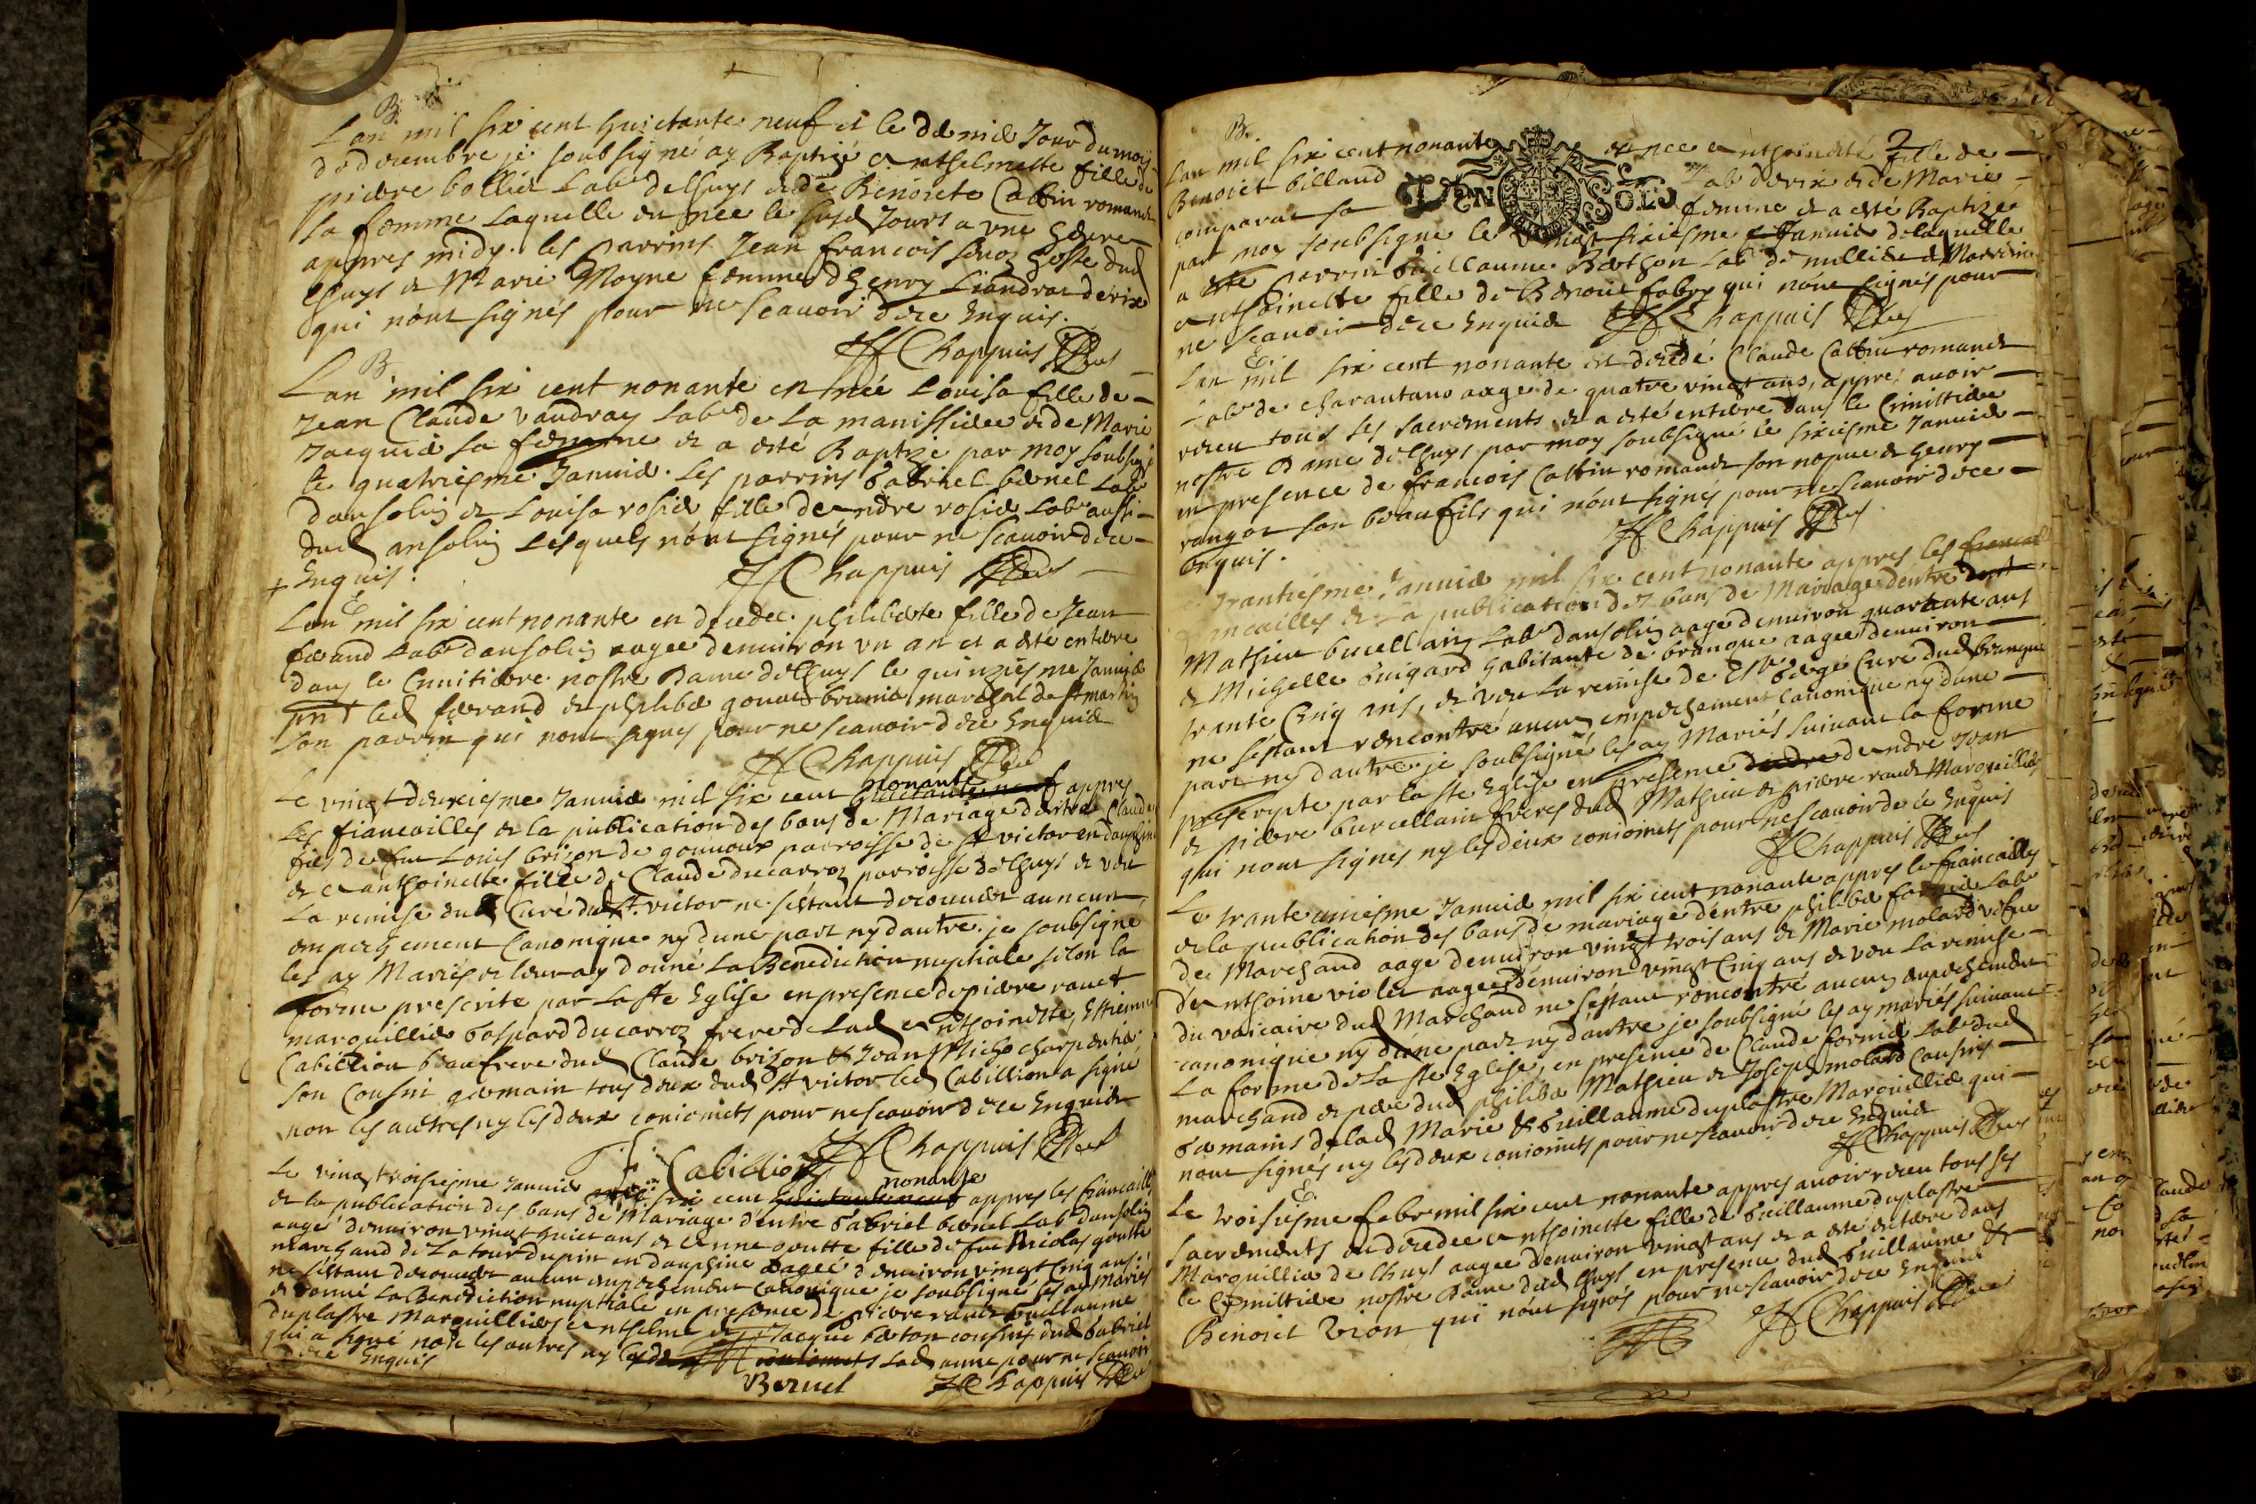 B.
Lan mil six cent huictante neuf et le dernier Jour du mois
de decembre je soubsigné ay Baptizé Anthelmette fille de
pierre bollier Labr de lhuys et de Benoiete Cattin romand
sa femme Laquelle est née le susd Jours a une heure
appres midy. les parrins Jean francois hoste dud
lhuys et Marie Moyne femme dhenry Liandrat derix
qui nónt signés pour ne scauoir dece Enquis.
JH Chappuis
B
Lan mil six cent nonante est née Louisa fille de
Jean Claude vaudray Labr de La manissiere et de Marie
Jacquier sa femme et a esté Baptizé par moy soubsigné
le quatriesme Januier. Les parrins Gabriel bernel Labr
dansolin et Louisa rosier fille de andre rosier Labr aussi
dud ansolin Lesquels nónt signés pour ne scauoir dece
Enquis.
JH Chappuis
E
Lan mil six cent nonante est decedée philiberte fille de Jean
ferand Labr dansolin aagee denuiron vn an et a esté enterre
dans le Cimitiere nostre Dame de lhuys le quinziesme Januier
pnt led ferand et philiber brunier mareschal de st martin
son parrin qui nont signés pour ne scauoir dece Enquis
JH Chappuis
Le vingt deuxiesme Januier mil six cent huictante neuf nonante appres
Les fiancailles et la publication des bans de Mariage dentre Claude
fils de feu Louis brizon de gouuoux parroisse de st victor en dauphiné
et Anthoinette fille de Claude ducarroz parroisse de lhuys et veu
La remise dud Curé dud st. victor ne séstant decouuert aucun
empeschement Canonique ny dune part ny dautre. je soubsigne
les ay Mariés et leur ay donné La Benediction nuptiale selon la
forme prescrite par La ste Eglise en presence de pierre rauet
marguillier Gaspard ducarroz frere de Lad Anthoinette, Estienne
Cabillion beaufrere dud Claude brizon et Jean Michel charpentier
son Cousin germain tous deux dud st victor led Cabillion a signé
non les autres ny les deux conioincts pour ne scauoir dece Enquis
Cabillion JH Chappuis
Le vingt troisiesme Januier mil six cent huictante neuf nonante appres les fiancailles
et la publication des bans de Mariage dentre Gabriel bernel Labr dansolin
aagé denuiron vingt huict ans et Anne goutte fille de feu Nicolas goutte
marchand de La tour du pin en dauphine aagee denuiron vingt Cinq ans
ne sestant decouuert aucun empeschement Canonique je soubsigné les ay Mariés
et donné La Benediction nuptiale en presence de pierre rauet Guillaume
duplastre Marguilliers Anthelme et Jacques cousins dud Gabriel
qui a signé non les autres ny conioincts Lad anne pour ne scauoir
dece Enquis
Bernel JH Chappuis
B.
2
DEN SOLS
Lan mil six cent nonante est nee Anthoinette fille de
Benoiet billaud Labr derix et de Marie
comparat sa femme et a esté Baptizee
par moy soubsigné le vingt sixiesme Januier de laquelle
a esté parrin Guillaume Berthon Labr de millier et Marrine
Anthoinette fille de Benoiet fabry qui nónt signés pour
ne scauoir dece Enquis JH Chappuis
E
Lan mil six cent nonante est decedé Claude Cattin romand
Labr de charantano aage de quatre vingt ans, appres auoir
receu tous les sacrements et a esté enterre dans le Cimittiere
nostre Dame de lhuys par moy soubsigné le sixiesme Januier
en presence de francois Cattin romand son nepueu et henry
rangot son beaufils qui nónt signés pour ne scauoir dece
Enquis.
JH Chappuis
trantiesme Januier mil six cent nonante appres les
fiancailles et la publication des bans de Mariage dentre
Mathieu burcellain Labr dansolin aagé denuiron quarante ans
et Michelle Guigard habitante de branque aagee denuiron
trante Cinq ans, et veu La remise de Curé dud branque
ne sestant rencontré aucun empeschement Canonique ny dune
part ny dautre. je soubsigné les ay Mariés suiuant la forme
prescripte par la ste Eglise en presence de andre Jean
et pierre burcellain freres dud Mathieu et pierre rauet Marguillier
qui nont signes ny les deux conioincts pour ne scauoir dece Enquis
JH Chappuis
Le trante uniesme Januier mil six cent nonante appres les fiancailles
et la publication des bans de mariage dentre philiber fornier Labr
de Marchand aage denuiron vingt trois ans et Marie molard vefue
de Anthoine violet aagee denuiron vingt Cinq ans et veu La remise
du vaicaire dud Marchand ne sestant rencontré aucun empeschement
canonique ny dune part ny dautre je soubsigné les ay mariés suiuant
La forme de La ste Eglise, en presence de Claude fornier Labr dud
marchand et pere dud philiber Mathieu et Joseph molard Cousins
Germains de lad Marie et Guillaume duplastre Marguillier qui
nont signés ny les deux conioincts pour ne scauoir dece Enquis
JH Chappuis
E
Le troisiesme febr mil six cent nonante appres auoir receu tous ses
sacrements est decedee Anthoinette fille de Guillaume duplastre
Marguillier de lhuys aagee denuiron vingt ans et a esté enterre dans
le Cimittiere nostre Dame dud lhuys en presence dud Guillaume et
Benoiet Vion qui nont signés pour ne scauoir dece Enquis
JH Chappuis